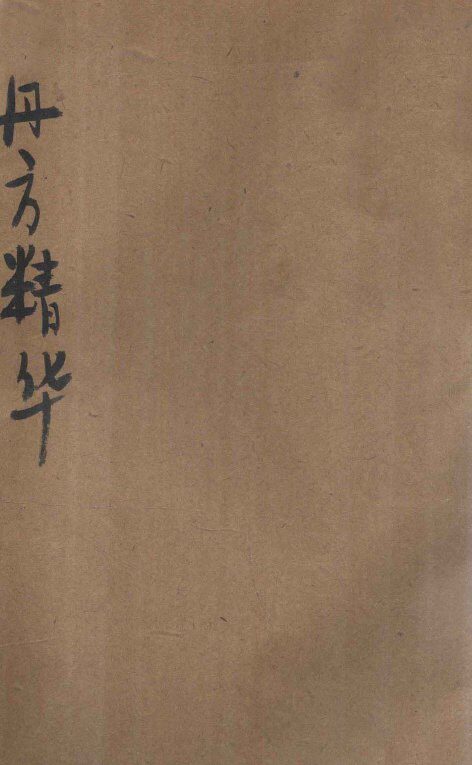 丹方精华